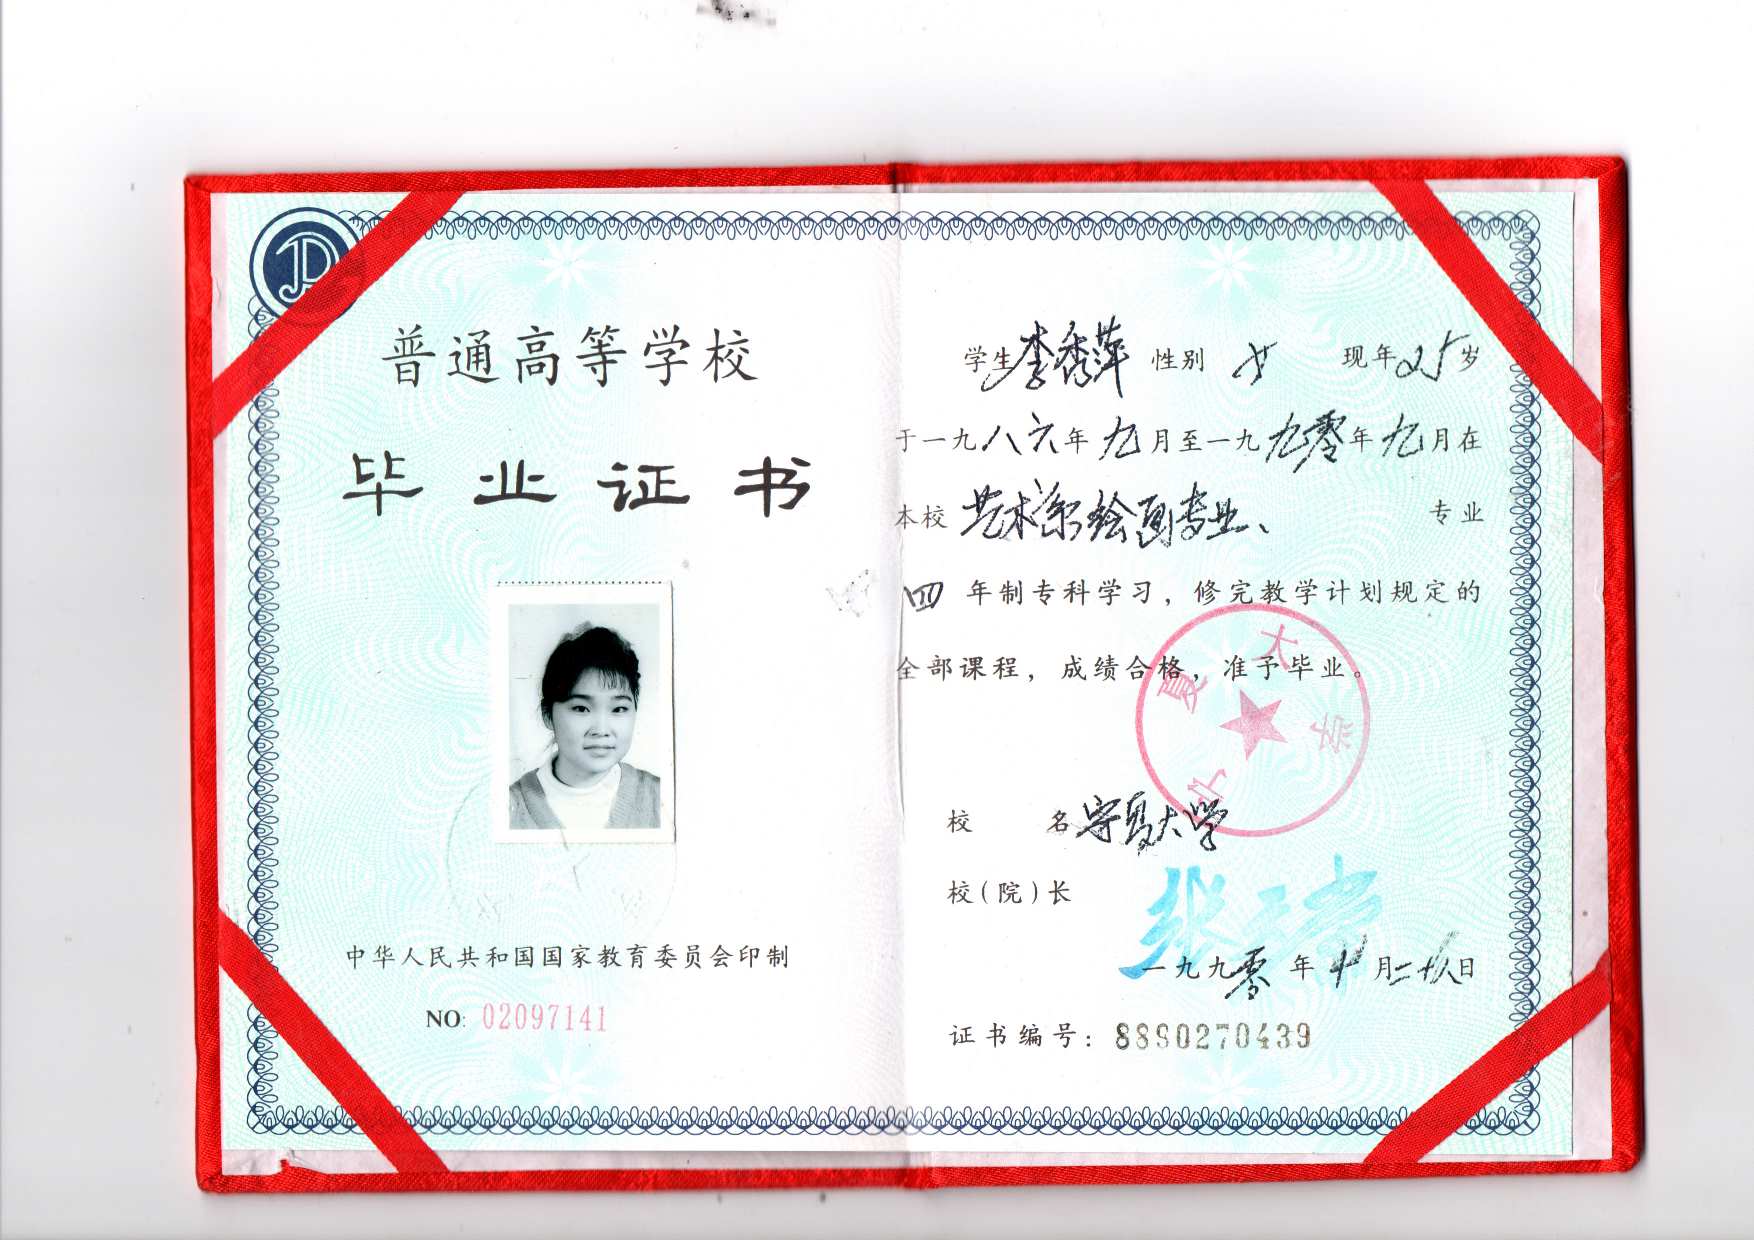 普通高等学校
毕业证书
中华人民共和国国家教育委员会印制
NO: 02097141
学生 李秀萍 性别 女 现年 25 岁
于一九八六年九月至一九九零年九月在
本校 艺术系绘画专业、 专业
四 年制专科学习，修完教学计划规定的
全部课程，成绩合格，准予毕业。
宁夏大学
校 名 宁夏大学
校（院）长
一九九零年 月二十八日
证书编号：8890270439